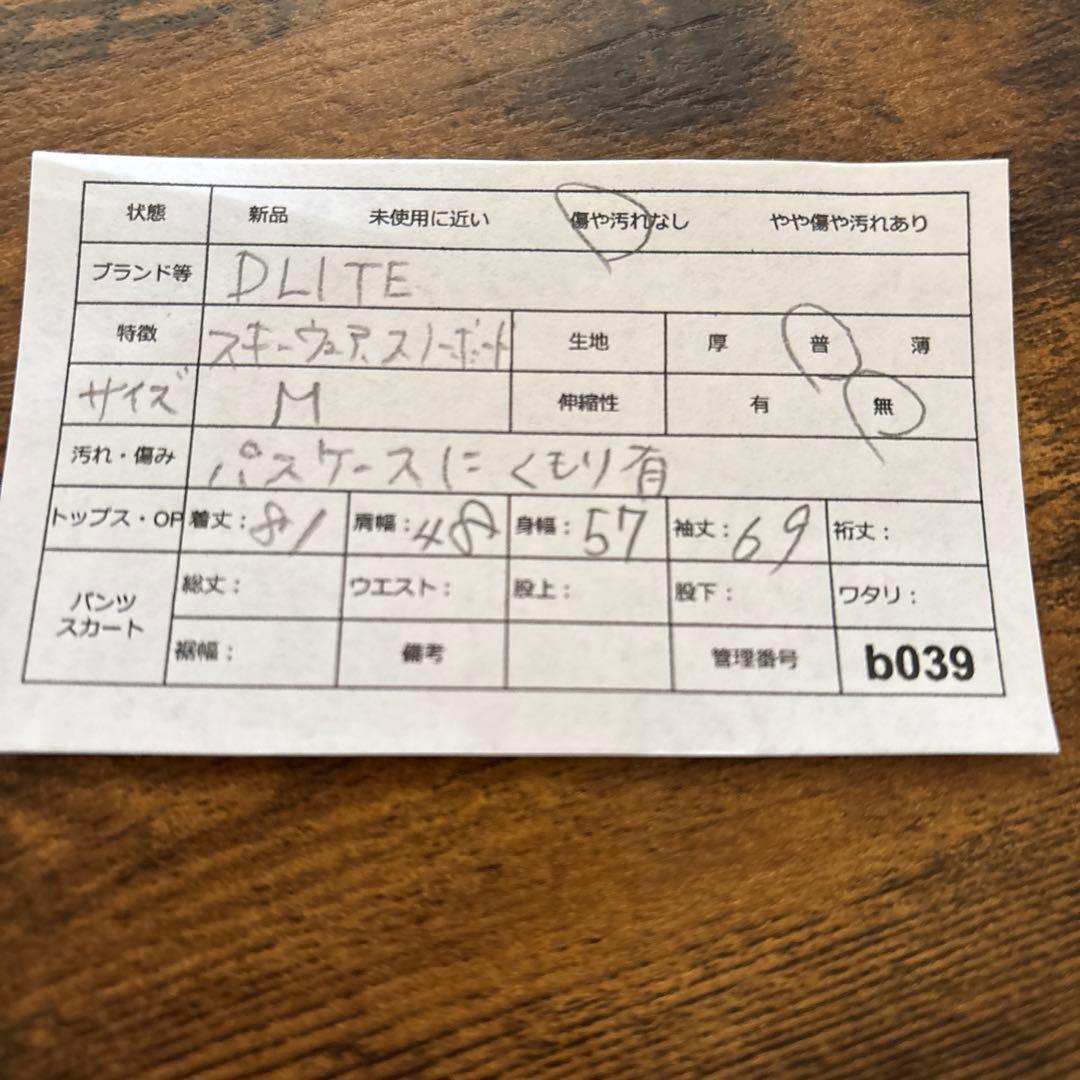 状態 新品 未使用に近い 傷や汚れなし やや傷や汚れあり
ブランド等 DLITE
特徴 スキーウェア、スノーボード 生地 厚 普 薄
サイズ M 伸縮性 有 無
汚れ・傷み パスケースにくもり有
トップス・OP 着丈：81 肩幅：48 身幅：57 袖丈：69 裄丈：
パンツ スカート 総丈： ウエスト： 股上： 股下： ワタリ：
裾幅： 備考 管理番号 b039